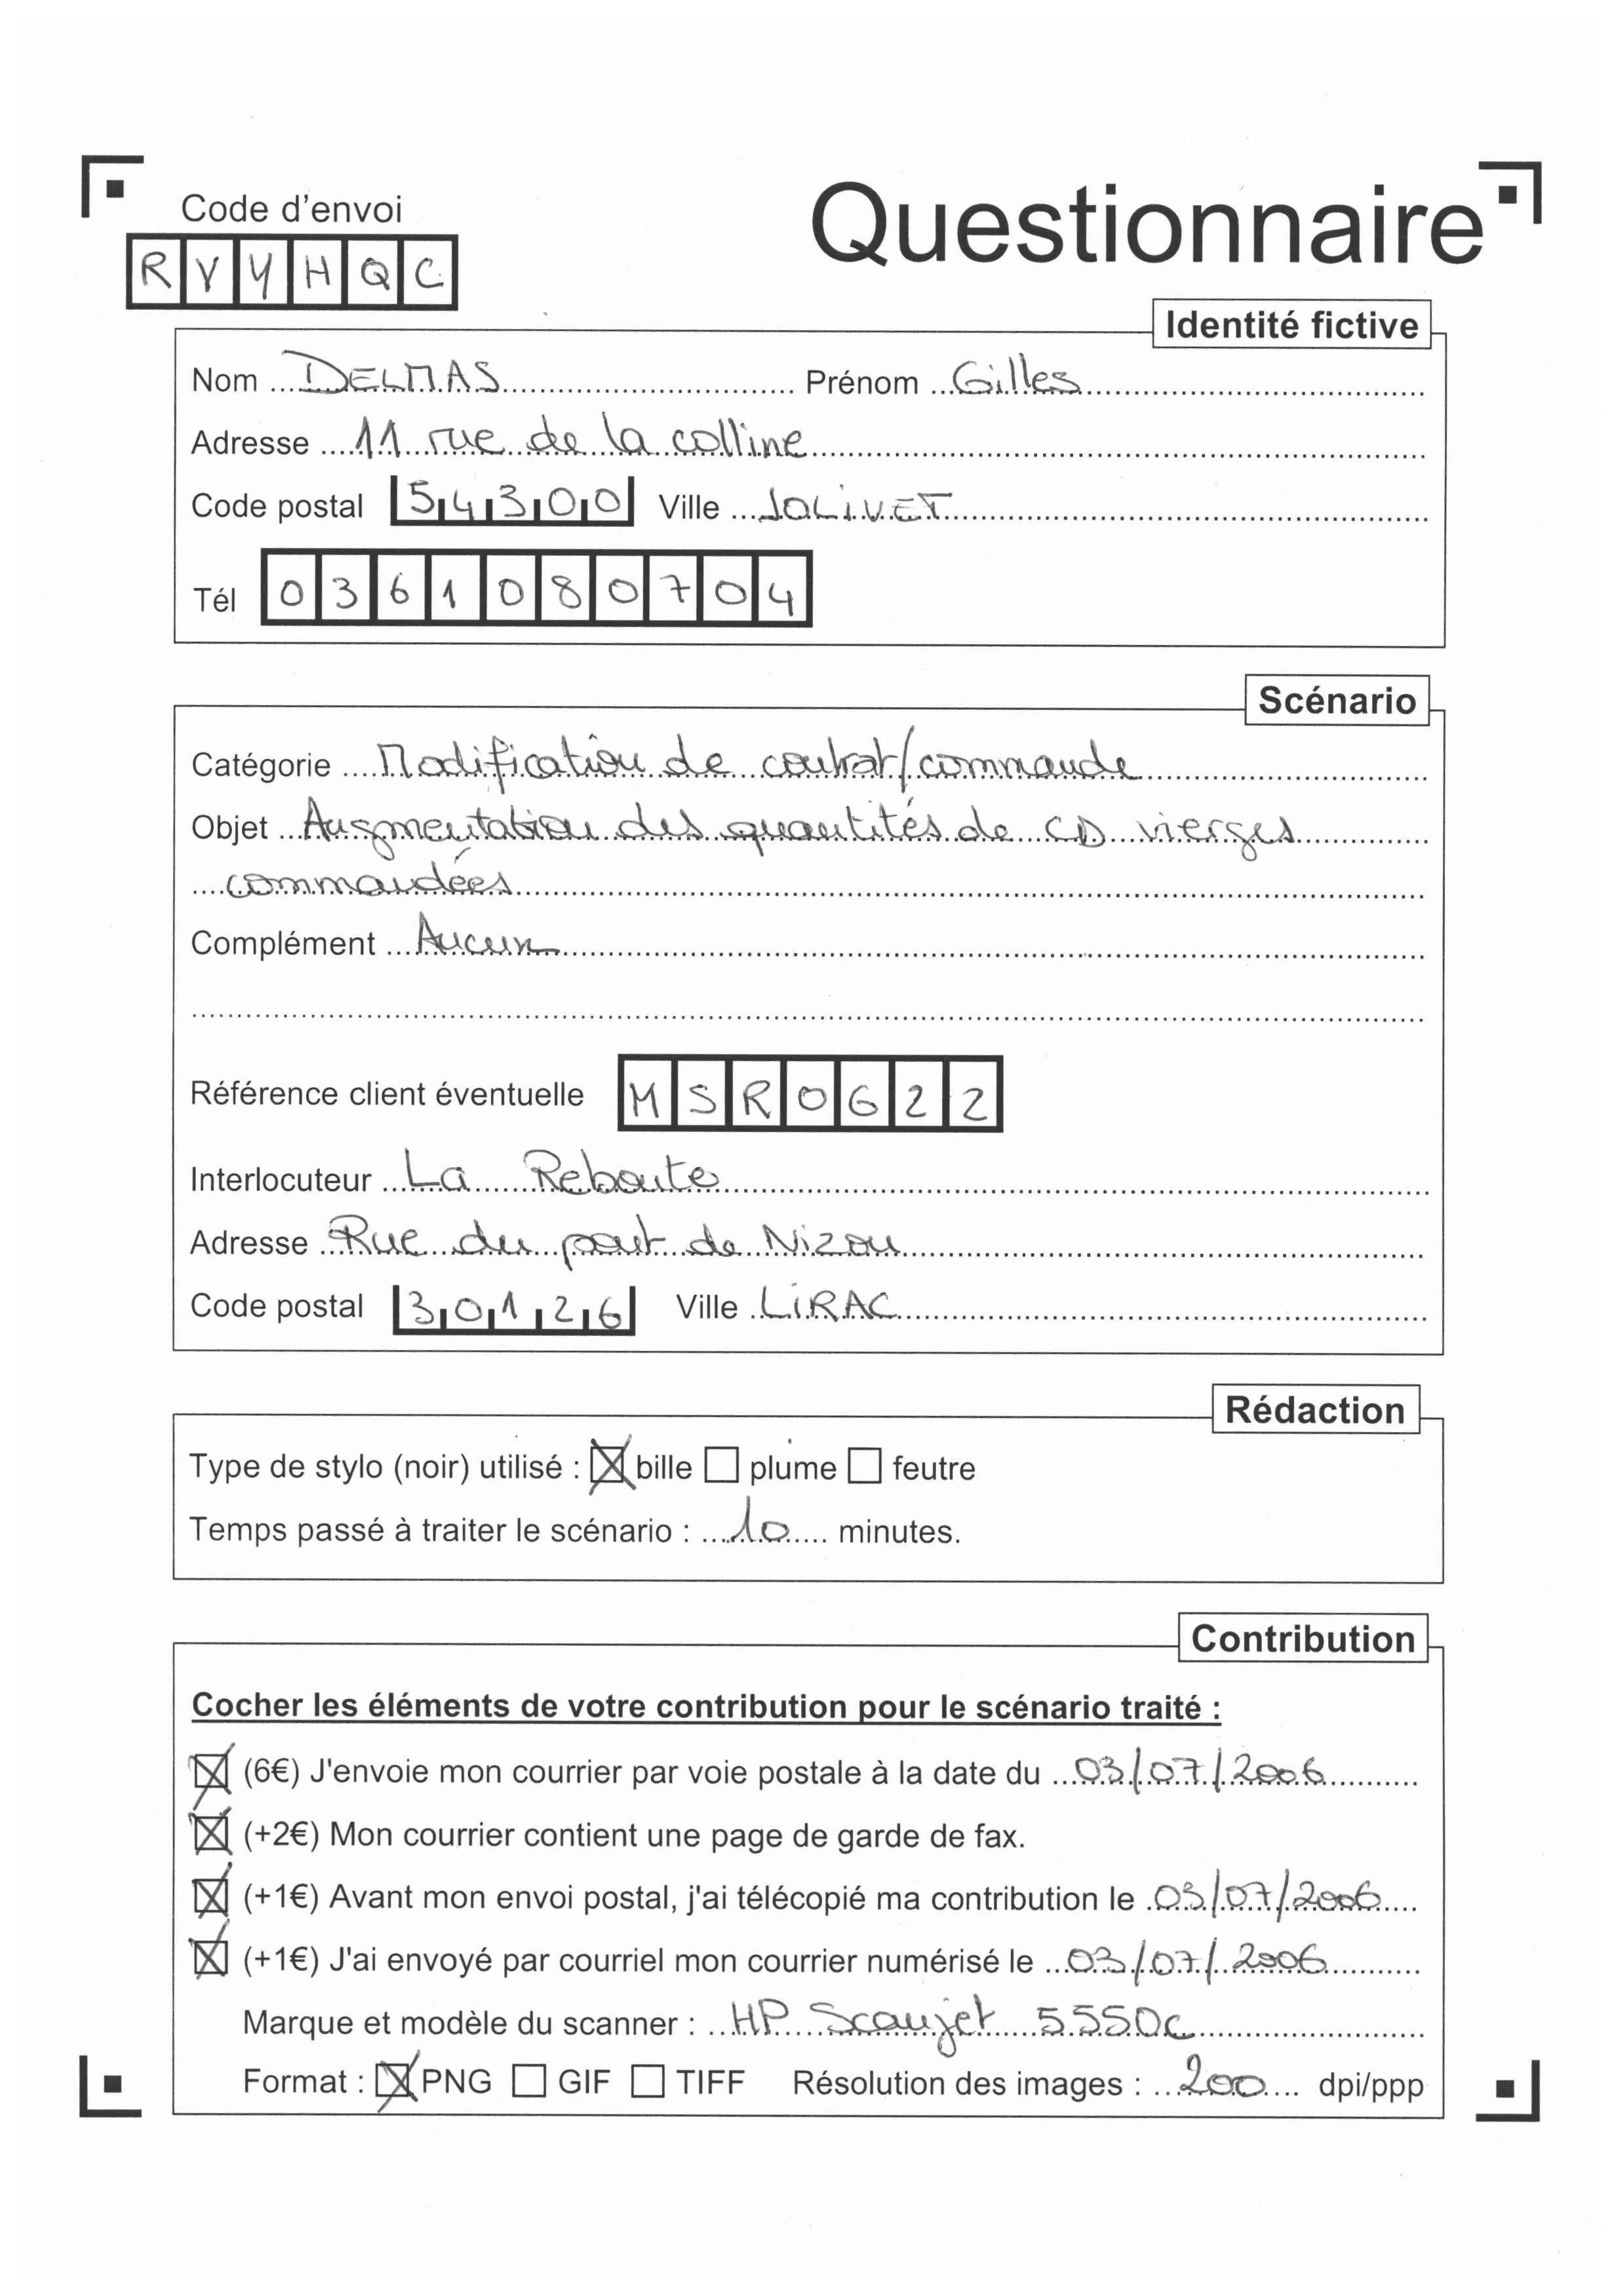 Questionnaire
Code d'envoi
RVYHQC
Identité fictive
Nom DELMAS Prénom Gilles
Adresse 11 rue de la colline
Code postal 54300 Ville JOLIVET
Tél 0361080704
Scénario
Catégorie Modification de contrat/commande
Objet Augmentation des quantités de CD vierges
commandées
Complément Aucun
Référence client éventuelle MSR0622
Interlocuteur La Reboute
Adresse Rue du pont de Nizon
Code postal 30126 Ville LIRAC
Rédaction
Type de stylo (noir) utilisé : ☒ bille ☐ plume ☐ feutre
Temps passé à traiter le scénario : 10 minutes.
Contribution
Cocher les éléments de votre contribution pour le scénario traité :
☒ (6€) J'envoie mon courrier par voie postale à la date du 03/07/2006
☒ (+2€) Mon courrier contient une page de garde de fax.
☒ (+1€) Avant mon envoi postal, j'ai télécopié ma contribution le 03/07/2006
☒ (+1€) J'ai envoyé par courriel mon courrier numérisé le 03/07/2006
Marque et modèle du scanner : HP Scanjet 5550c
Format : ☒ PNG ☐ GIF ☐ TIFF Résolution des images : 200 dpi/ppp